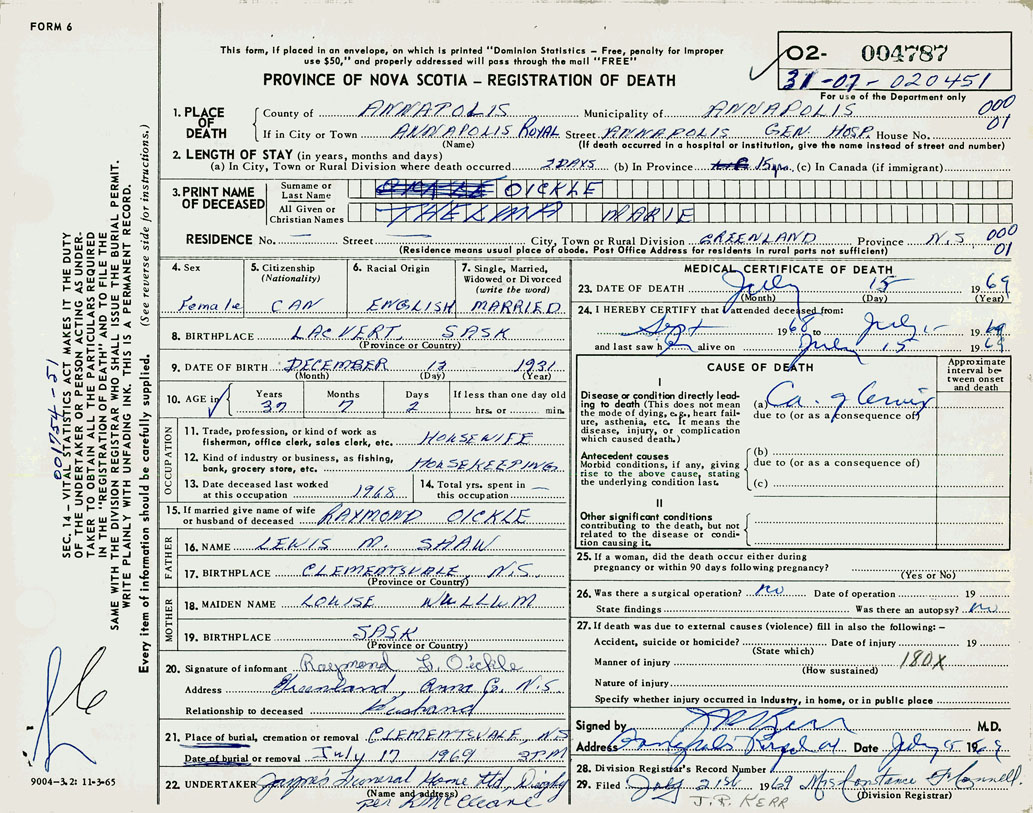 FORM 6
This form, if placed in an envelope, on which is printed "Dominion Statistics – Free, penalty for improper
use $50," and properly addressed will pass through the mail "FREE"
O2- 004787
31-07-020451
For use of the Department only
PROVINCE OF NOVA SCOTIA – REGISTRATION OF DEATH
000
01
1. PLACE OF DEATH
County of ANNAPOLIS Municipality of ANNAPOLIS
If in City or Town ANNAPOLIS ROYAL Street ANNAPOLIS GEN. HOSP. House No.
(Name) (If death occurred in a hospital or institution, give the name instead of street and number)
2. LENGTH OF STAY (in years, months and days)
(a) In City, Town or Rural Division where death occurred 2 DAYS (b) In Province 15 yrs. (c) In Canada (if immigrant)
3. PRINT NAME OF DECEASED
Surname or Last Name OICKLE
All Given or Christian Names THELMA MARIE
RESIDENCE No. — Street — City, Town or Rural Division GREENLAND Province N.S.
000
01
(Residence means usual place of abode. Post Office Address for residents in rural parts not sufficient)
4. Sex Female
5. Citizenship (Nationality) CAN
6. Racial Origin ENGLISH
7. Single, Married, Widowed or Divorced (write the word) MARRIED
8. BIRTHPLACE LAC VERT, SASK
(Province or Country)
9. DATE OF BIRTH DECEMBER 13 1931
(Month) (Day) (Year)
10. AGE in Years 37 Months 7 Days 2 If less than one day old hrs. or min.
OCCUPATION
11. Trade, profession, or kind of work as fisherman, office clerk, sales clerk, etc. HOUSEWIFE
12. Kind of industry or business, as fishing, bank, grocery store, etc. HOUSEKEEPING
13. Date deceased last worked at this occupation 1968
14. Total yrs. spent in this occupation —
15. If married give name of wife or husband of deceased RAYMOND OICKLE
FATHER
16. NAME LEWIS M. SHAW
17. BIRTHPLACE CLEMENTSVALE, N.S.
(Province or Country)
MOTHER
18. MAIDEN NAME LOUISE
19. BIRTHPLACE SASK
(Province or Country)
20. Signature of informant Raymond L. Oickle
Address Greenland, Anna Co. N.S.
Relationship to deceased Husband
21. Place of burial, cremation or removal CLEMENTSVALE, N.S
Date of burial or removal July 17 1969 2 P.M
22. UNDERTAKER Jayne's Funeral Home Ltd, Digby
(Name and address)
per
MEDICAL CERTIFICATE OF DEATH
23. DATE OF DEATH July 15 1969
(Month) (Day) (Year)
24. I HEREBY CERTIFY that I attended deceased from:
Sept 1968 to July 15 1969
and last saw h alive on July 15 1969
CAUSE OF DEATH
Approximate interval between onset and death
I
Disease or condition directly leading to death (This does not mean the mode of dying, e.g., heart failure, asthenia, etc. It means the disease, injury, or complication which caused death.)
(a) Ca. of Cervix
due to (or as a consequence of)
Antecedent causes
Morbid conditions, if any, giving rise to the above cause, stating the underlying condition last.
(b)
due to (or as a consequence of)
(c)
II
Other significant conditions
contributing to the death, but not related to the disease or condition causing it.
25. If a woman, did the death occur either during
pregnancy or within 90 days following pregnancy?
(Yes or No)
26. Was there a surgical operation? no Date of operation 19
State findings Was there an autopsy? no
27. If death was due to external causes (violence) fill in also the following:–
Accident, suicide or homicide? Date of injury 19
(State which)
Manner of injury 180X
(How sustained)
Nature of injury
Specify whether injury occurred in Industry, in home, or in public place
Signed by J P Kerr M.D.
Address Annapolis Royal Date July 15 1969
28. Division Registrar's Record Number
29. Filed July 21st 1969 Mrs Constance
(Division Registrar)
J.P. KERR
001754-51
SEC. 14 – VITAL STATISTICS ACT MAKES IT THE DUTY
OF THE UNDERTAKER OR PERSON ACTING AS UNDER-
TAKER TO OBTAIN ALL THE PARTICULARS REQUIRED
IN THE "REGISTRATION OF DEATH" AND TO FILE THE
SAME WITH THE DIVISION REGISTRAR WHO SHALL ISSUE THE BURIAL PERMIT.
WRITE PLAINLY WITH UNFADING INK. THIS IS A PERMANENT RECORD.
Every item of information should be carefully supplied. (See reverse side for instructions.)
9004-3.2: 11-3-65